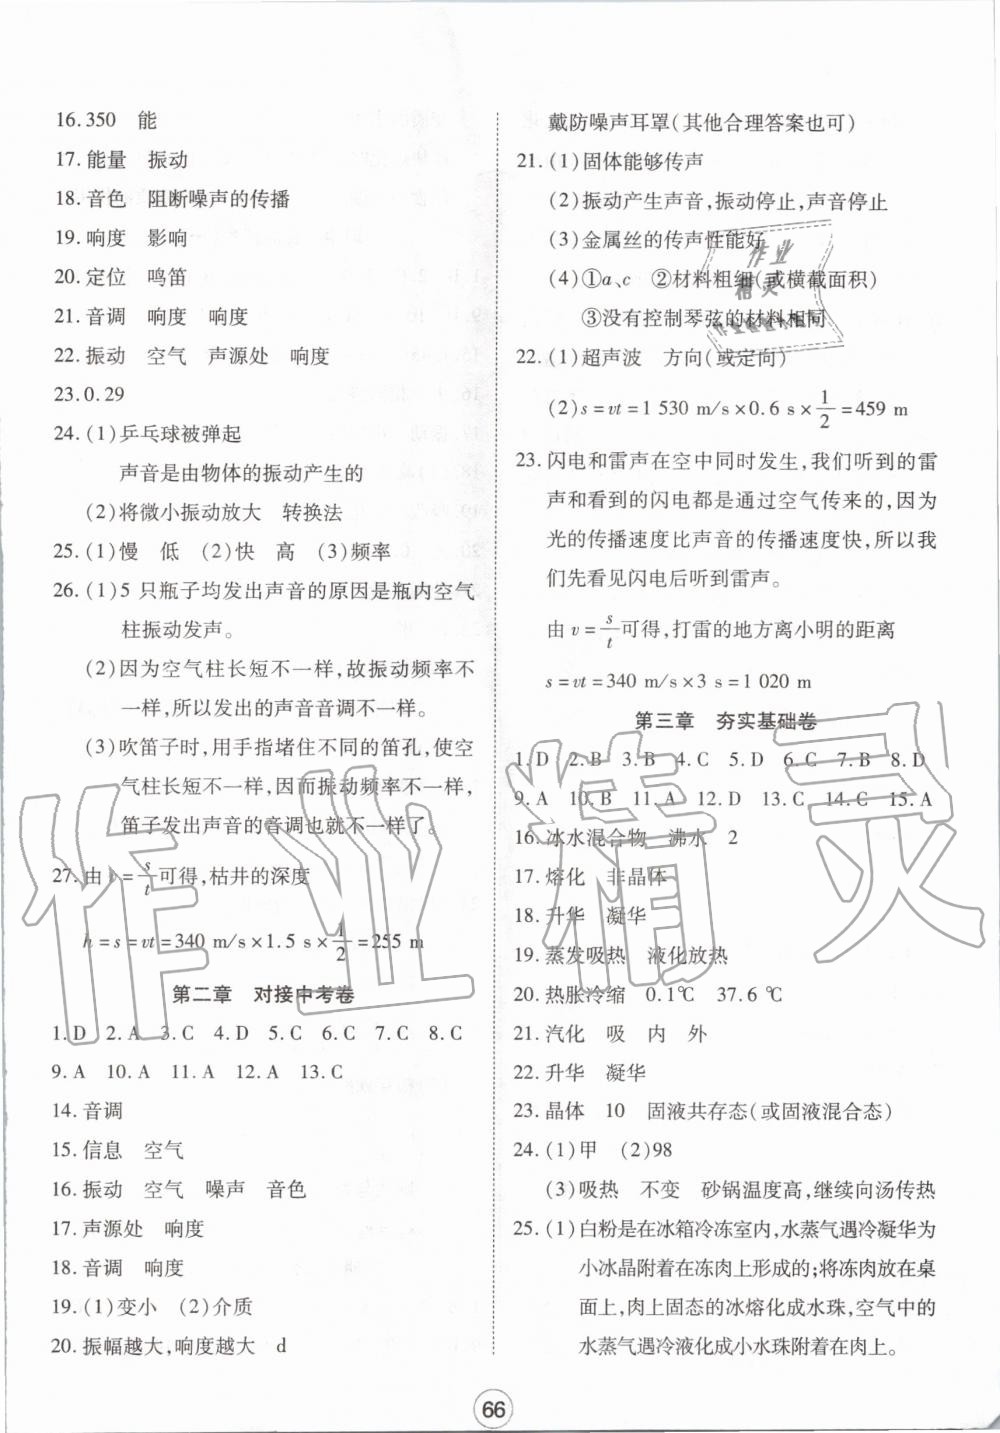 16.350 能
17.能量 振动
18.音色 阻断噪声的传播
19.响度 影响
20.定位 鸣笛
21.音调 响度 响度
22.振动 空气 声源处 响度
23.0.29
24.(1)乒乓球被弹起
声音是由物体的振动产生的
(2)将微小振动放大 转换法
25.(1)慢 低 (2)快 高 (3)频率
26.(1)5 只瓶子均发出声音的原因是瓶内空气
柱振动发声。
(2)因为空气柱长短不一样,故振动频率不
一样,所以发出的声音音调不一样。
(3)吹笛子时,用手指堵住不同的笛孔,使空
气柱长短不一样,因而振动频率不一样,
笛子发出声音的音调也就不一样了。
27.由 v=s/t可得,枯井的深度
h=s=vt=340 m/s×1.5 s×1/2=255 m
第二章 对接中考卷
1.D 2.A 3.C 4.D 5.C 6.C 7.C 8.C
9.A 10.A 11.A 12.A 13.C
14.音调
15.信息 空气
16.振动 空气 噪声 音色
17.声源处 响度
18.音调 响度
19.(1)变小 (2)介质
20.振幅越大,响度越大 d
戴防噪声耳罩(其他合理答案也可)
21.(1)固体能够传声
(2)振动产生声音,振动停止,声音停止
(3)金属丝的传声性能好
(4)①a、c ②材料粗细(或横截面积)
③没有控制琴弦的材料相同
22.(1)超声波 方向(或定向)
(2)s=vt=1 530 m/s×0.6 s×1/2=459 m
23.闪电和雷声在空中同时发生,我们听到的雷
声和看到的闪电都是通过空气传来的,因为
光的传播速度比声音的传播速度快,所以我
们先看见闪电后听到雷声。
由 v=s/t可得,打雷的地方离小明的距离
s=vt=340 m/s×3 s=1 020 m
第三章 夯实基础卷
1.D 2.B 3.B 4.C 5.D 6.C 7.B 8.D
9.A 10.B 11.A 12.D 13.C 14.C 15.A
16.冰水混合物 沸水 2
17.熔化 非晶体
18.升华 凝华
19.蒸发吸热 液化放热
20.热胀冷缩 0.1℃ 37.6℃
21.汽化 吸 内 外
22.升华 凝华
23.晶体 10 固液共存态(或固液混合态)
24.(1)甲 (2)98
(3)吸热 不变 砂锅温度高,继续向汤传热
25.(1)白粉是在冰箱冷冻室内,水蒸气遇冷凝华为
小冰晶附着在冻肉上形成的;将冻肉放在桌
面上,肉上固态的冰熔化成水珠,空气中的
水蒸气遇冷液化成小水珠附着在肉上。
66
作业精灵
作业
精灵